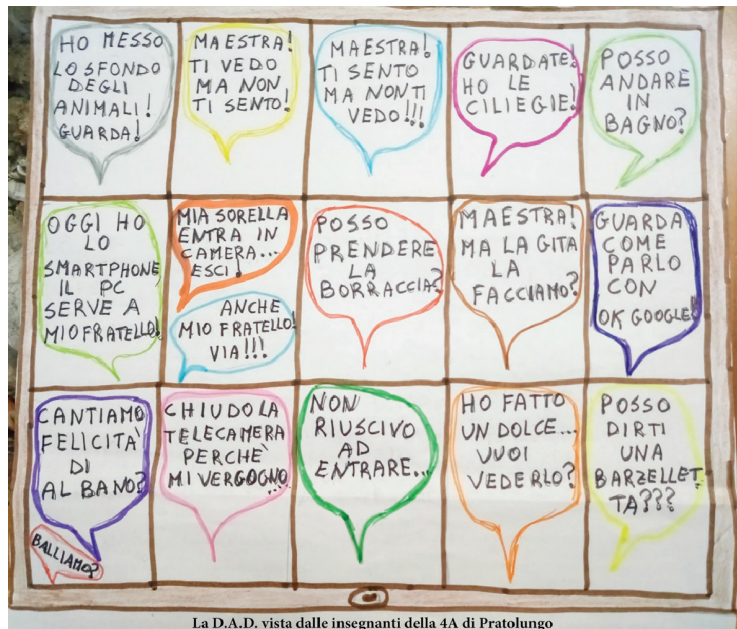 HO MESSO
LO SFONDO
DEGLI
ANIMALI!
GUARDA!
MAESTRA!
TI VEDO
MA NON
TI SENTO!
MAESTRA!
TI SENTO
MA NON TI
VEDO!!!
GUARDATE!
HO LE
CILIEGIE!
POSSO
ANDARE
IN
BAGNO?
OGGI HO
LO
SMARTPHONE,
IL PC
SERVE A
MIO FRATELLO!
MIA SORELLA
ENTRA IN
CAMERA...
ESCI!
ANCHE
MIO FRATELLO!
VIA!!!
POSSO
PRENDERE
LA
BORRACCIA?
MAESTRA!
MA LA GITA
LA
FACCIAMO?
GUARDA
COME
PARLO
CON
OK GOOGLE!
CANTIAMO
FELICITÀ
DI
AL BANO?
BALLIAMO?
CHIUDO LA
TELECAMERA
PERCHÈ
MI VERGOGNO...
NON
RIUSCIVO
AD
ENTRARE...
HO FATTO
UN DOLCE...
VUOI
VEDERLO?
POSSO
DIRTI
UNA
BARZELLET
TA???
La D.A.D. vista dalle insegnanti della 4A di Pratolungo